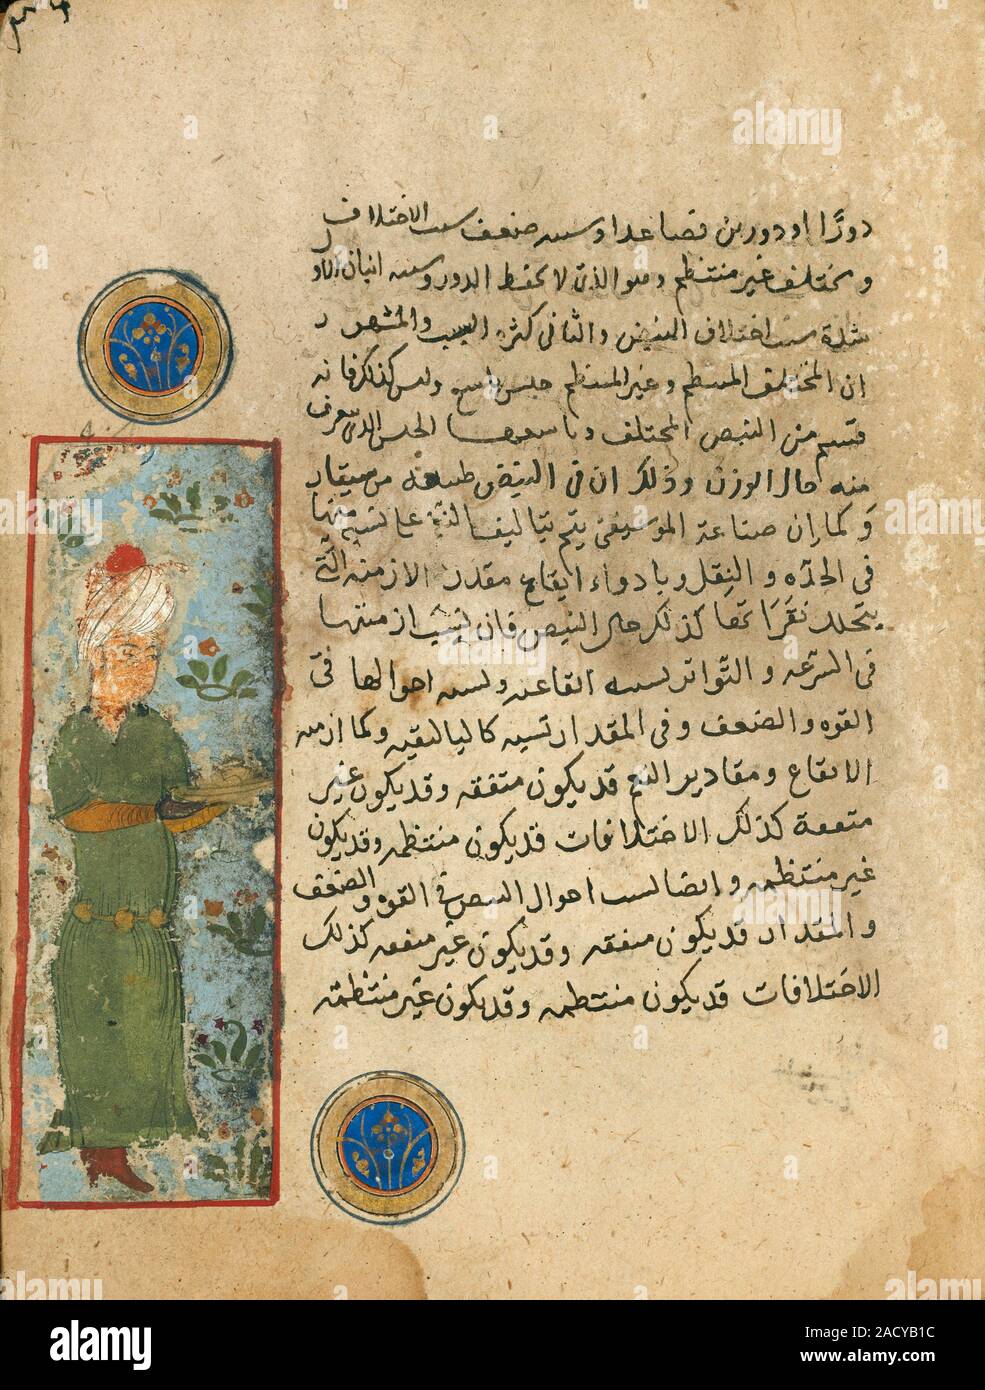 دورًا او دورين فصاعدا وسببه ضعف سبب الاختلاف
ومختلف غير منتظم وهو الذى لا يحفظ الدور وسببه اتيان الاو
شدة سبب اختلاف النبض والثانى كثرة السبب والمشهور
ان المختلف المنتظم وغير المنتظم جنس تاسع وليس كذلك فانه
قسم من النبض المختلف الجنس الذى يعرف
منه حال الوزن وذلك ان فى النبض طبيعة موسيقار
وكما ان صناعة الموسيقى يتم بتاليف النغم على نسبة منها
فى الحدّه والثقل وبادوار ايقاع مقدار الازمنه التى
يتخلل نقراتها كذلك حال النبض فان نسب ازمنتها
فى السرعه والتّواتر نسبه ايقاعيه ونسبه احوالها فى
القوه والضعف وفى المقدار نسبه كالتاليفيه وكما ازمنه
الايقاع ومقادير النغم قد يكون متفقه وقد يكون غير
متفقة كذلك الاختلافات قد يكون منتظمه وقد يكون
غير منتظمه وايضا نسب احوال النبض فى القوه والضعف
والمقدار قد يكون متفقه وقد يكون غير متفقه كذلك
الاختلافات قد يكون منتظمه وقد يكون غير منتظمة
alamy
a
alamy
Image ID: 2ACYB1C
www.alamy.com